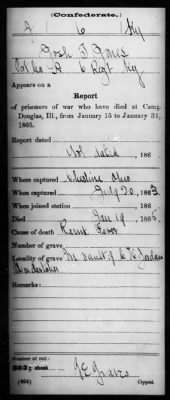 (Confederate.)
J 6 Ky
Josh T. Jones
Pvt Co A 6 Regt Ky
Appears on a
Report
of prisoners of war who have died at Camp
Douglas, Ill., from January 15 to January 31,
1865.
Report dated
Not dated, 186
Where captured Cheshire Ohio
When captured July 20, 1863
When joined station , 186
Died Jan 19, 1865
Cause of death Remit Fever
Number of grave
Locality of grave
Undertaker
Remarks:
Number of roll:
303; sheet
Copyist.